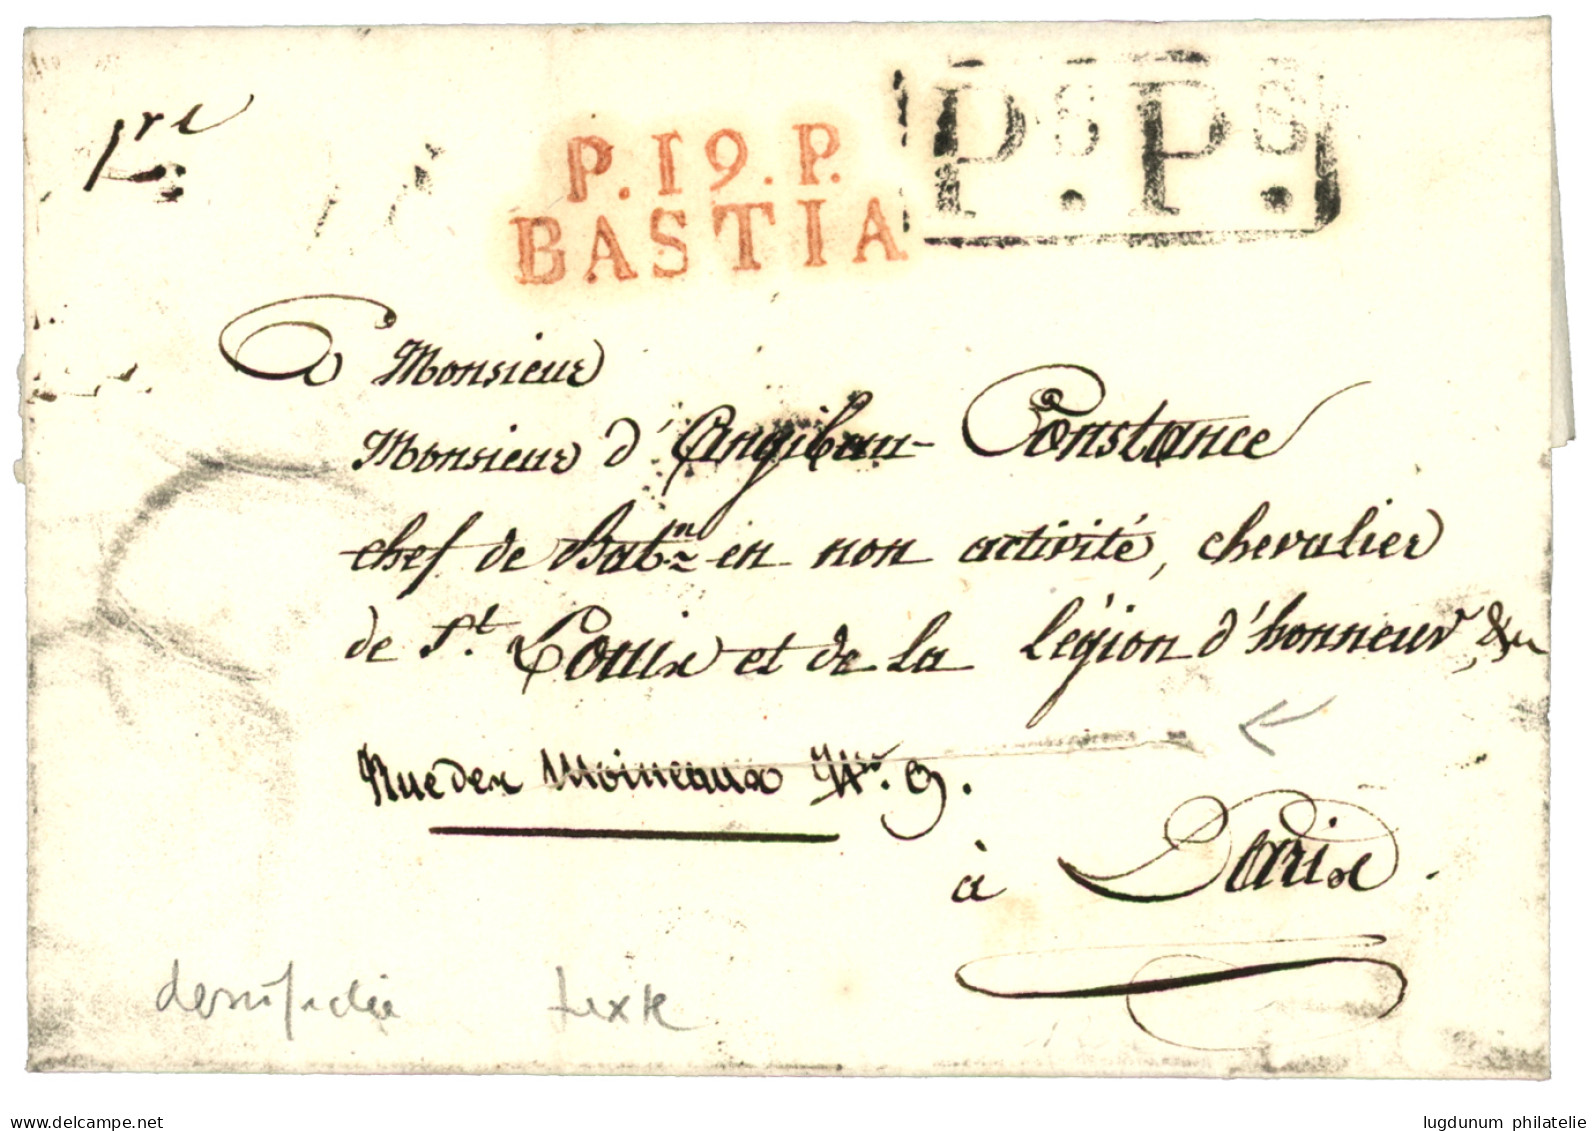 pre
P.19.P.
BASTIA
Ps.Ps.
A Monsieur
Monsieur d'Angibau Constance
chef de Batn en non activité, chevalier
de St. Louis et de la légion d'honneur, &a
Rue des Moineaux No. 9.
à Paris.
texte
www.delcampe.net
lugdunum philatelie